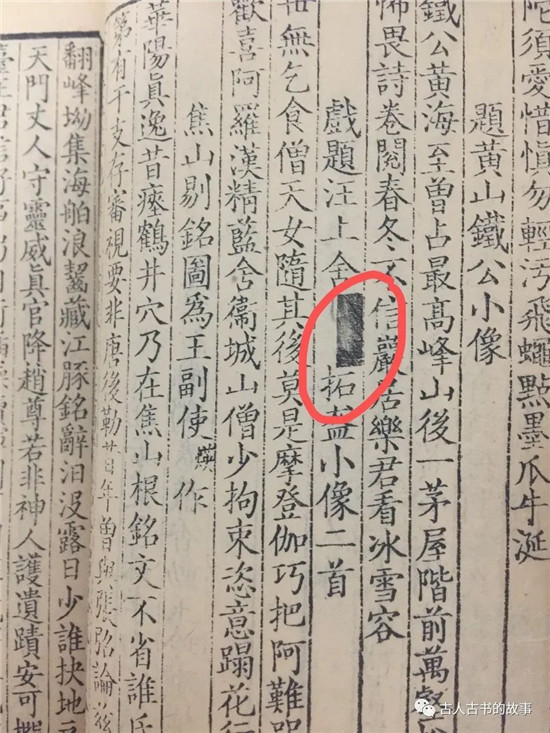 須愛惜慎勿輕污飛蠅點墨瓜牛涎
題黃山鐵公小像
鐵公黃海至曾占最高峰山後一茅屋階前萬壑
怖畏詩卷閱春冬不信巖居樂君看冰雪容
戲題汪上舍拓益小像二首
無乞食僧天女隨其後莫是摩登伽巧把阿難
歡喜阿羅漢精藍舍衞城山僧少拘束恣意蹋花行
焦山剔銘圖爲王副使煐作
華陽眞逸昔瘞鶴井穴乃在焦山根銘文不省誰氏
第有干支存審視要非唐後勒昔年曾與張弨論茲
翻峰坳集海舶浪齧藏江豚銘辭汨沒露日少誰抉地
天門丈人守靈威眞官降趙尊若非神人護遺蹟安可
古人古书的故事